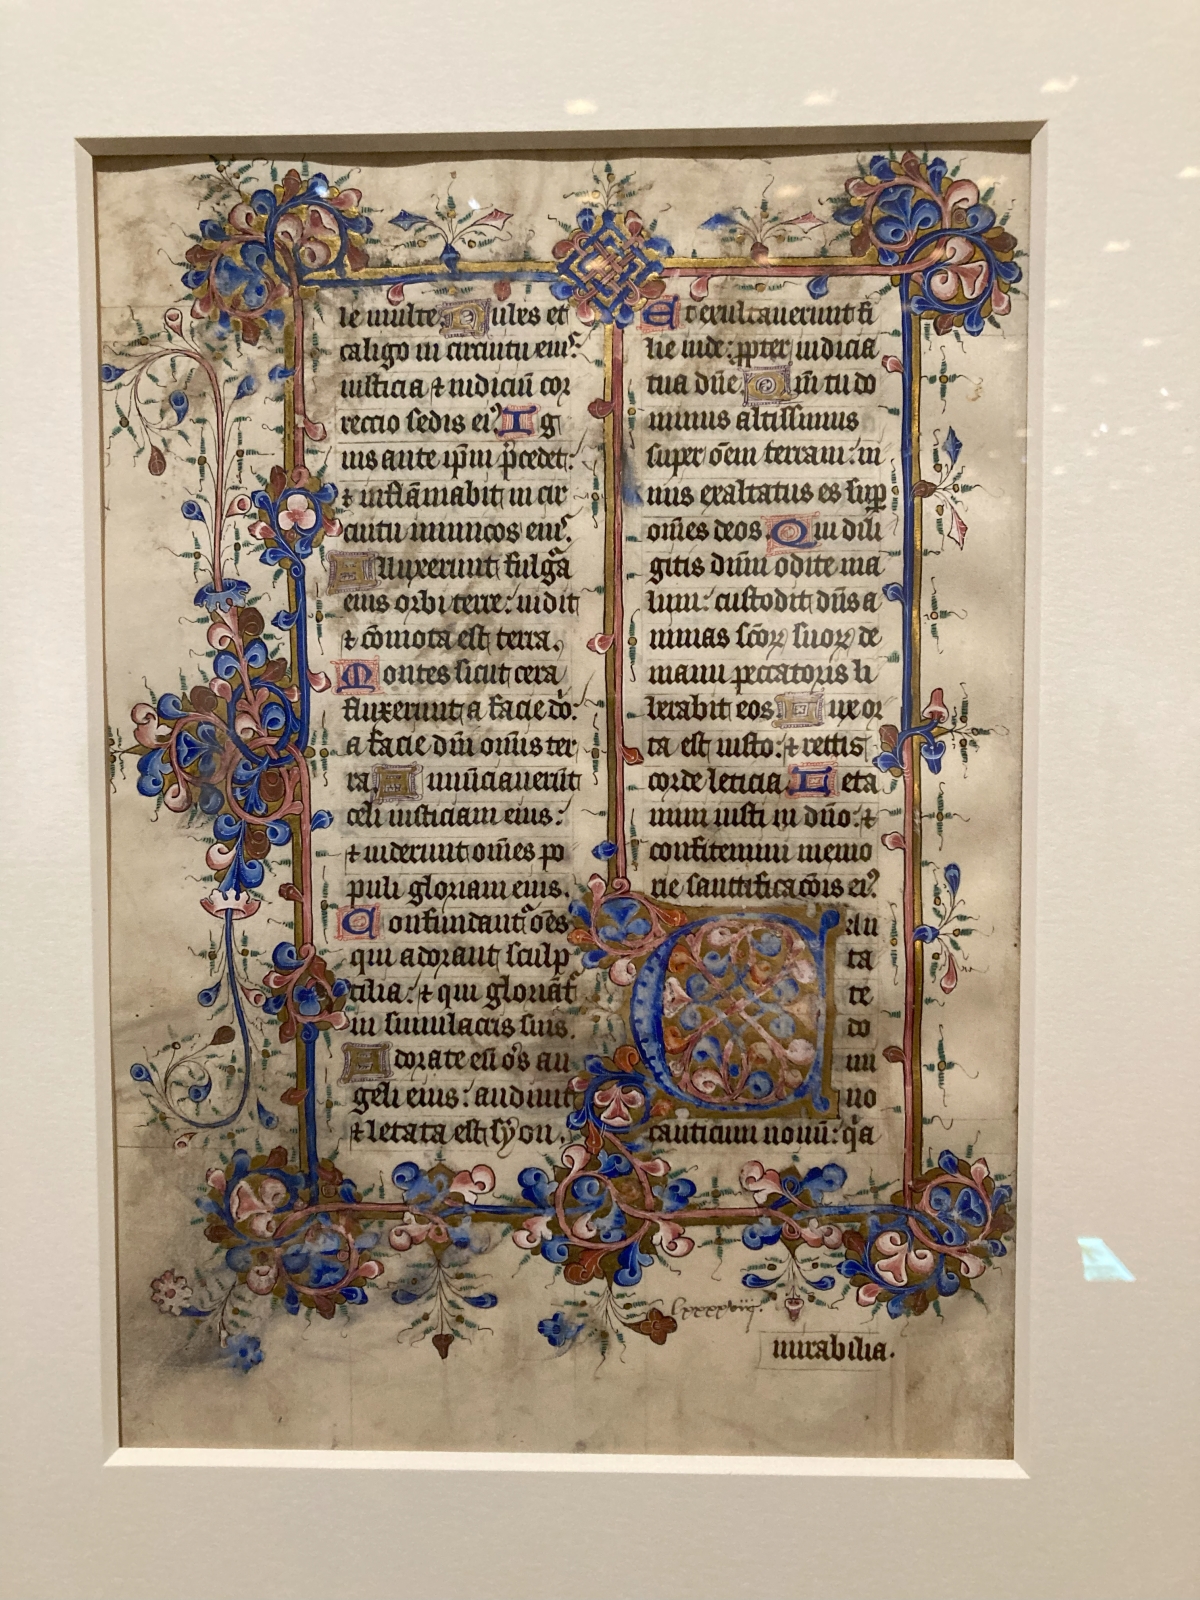 le multe Nubes et
caligo in circuitu eiꝰ:
iusticia ⁊ iudiciū cor
rectio sedis eiꝰ Ig
nis ante ip̄m p̄cedet:
⁊ inflāmabit in cir
cuitu inimicos eiꝰ.
Alluxerunt fulgᵃa
eius orbi terre: uidit
⁊ cōmota est terra.
Montes sicut cera
fluxerunt a facie do:
a facie dn̄i omīs ter
ra Annūciauerūt
celi iusticiam eius:
⁊ uiderunt om̄es po
puli gloriam eius.
Confundantᷣ oēs
qui adorant sculp
tilia: ⁊ qui gloriātᷣ
in simulacris suis.
Adorate eū oēs an
geli eius: audiuit
⁊ letata est syon.
Et exultauerunt fi
lie iude: ꝓpter iudicia
tua dn̄e Qm̄ tu do
minus altissimus
super ōem terram: ni
mis exaltatus es suꝑ
om̄es deos. Qui dili
gitis dn̄m odite ma
lum: custodit dn̄s a
nimas scōꝝ suoꝝ de
manu peccatoris li
berabit eos Lux or
ta est iusto: ⁊ rectis
corde leticia. Leta
mini iusti in dn̄o: ⁊
confitemini memo
rie sanctificacōis eiꝰ
Cān
ta
te
do
mi
no
canticum nouū: qᷓa
lxxxxviij.
mirabilia.